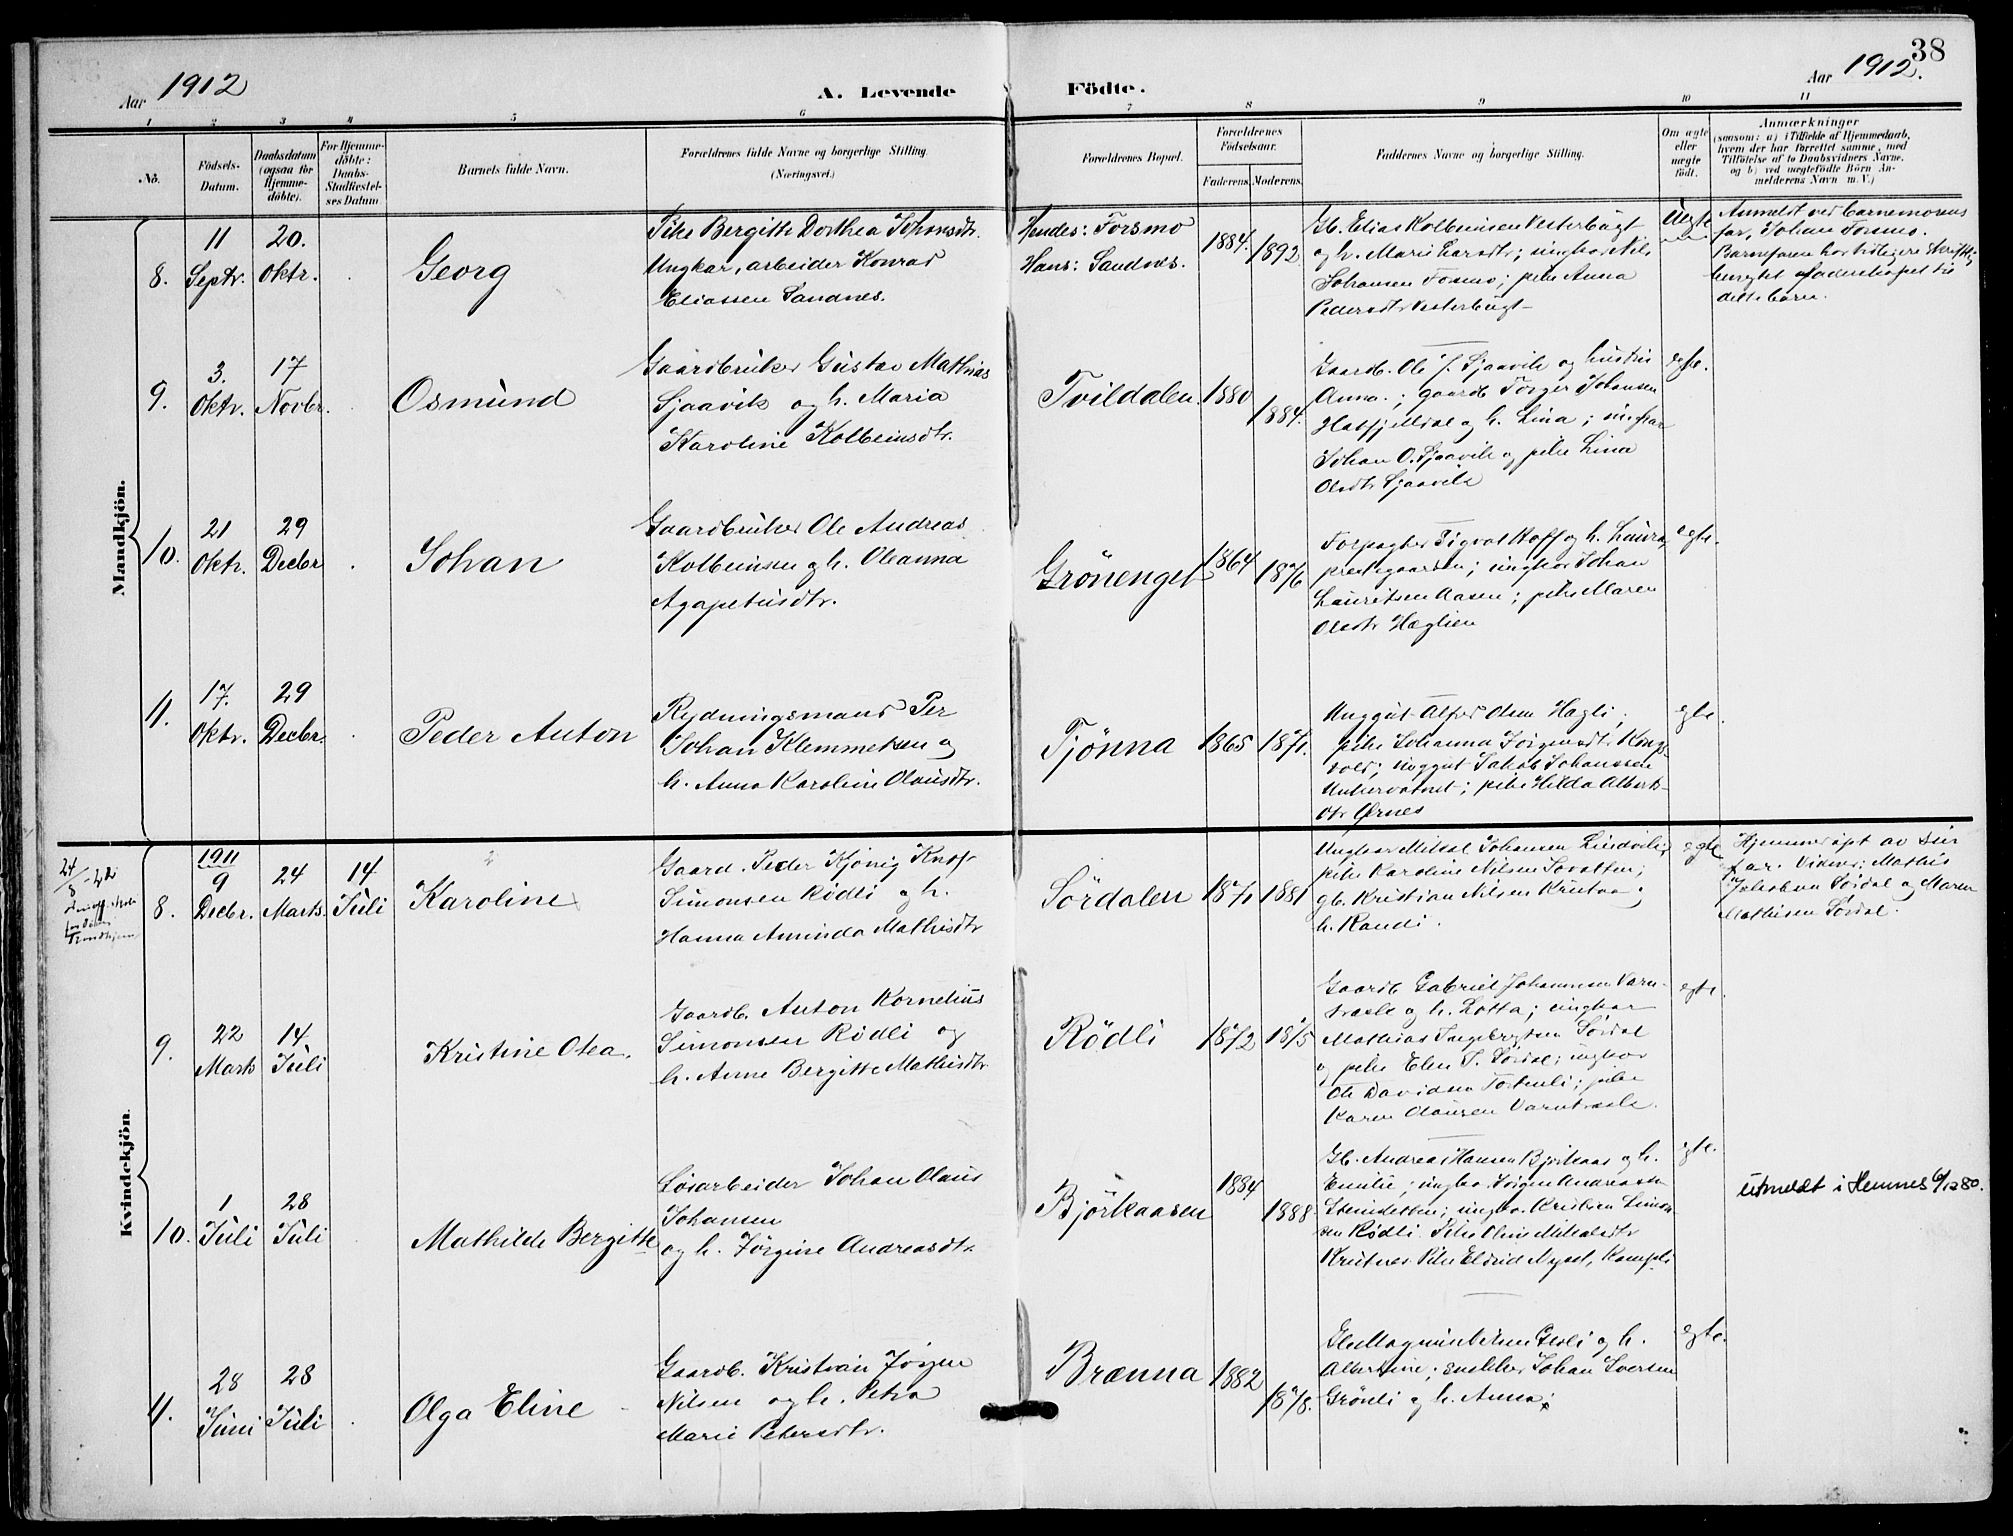 38
Aar 1912
A. Levende
Födte.
Aar 1912.
1 2 3 4 5 6 7 8 9 10 11
No.
Födsels-
Datum.
Daabsdatum
(ogsaa for
Hjemme-
döbte).
For Hjemme-
döbte:
Daabs-
Stadfæstel-
ses Datum
Barnets fulde Navn.
Forældrenes fulde Navne og borgerlige Stilling.
(Næringsvei.)
Forældrenes Bopæl.
Forældrenes
Födselsaar.
Faderens. Moderens.
Faddernes Navne og borgerlige Stilling.
Om ægte
eller
uægte
födt.
Anmærkninger
(saasom: a) i Tilfælde af Hjemmedaab,
hvem der har forrettet samme, med
Tilföielse af to Daabsvidners Navne,
og b) ved uægtefödte Börn An-
melderens Navn m. V.)
Mandkjön.
8.
11
Septr.
20.
Oktr.
Georg
Pike Bergitte Dorthea Johansdtr.
Ungkar, arbeider Konrad
Eliassen Sandnes.
Hendes: Forsmo
Hans: Sandnes.
1884.
1892
Gb. Elias Kolbeinsen Vesterbugt
og h. Mari Larsdtr; ungkar Nils
Johansen Fosmo; pike Anna
Pedersdtr Vesterbugt
Uegte
Anmeldt ved barnemorens
far, Johan Forsmo.
Barnefaren har tidligere skriftl.
benegtet faderskapet til
dette barn.
9.
3.
Oktr.
17
Novbr.
Osmund
Gaardbruker Gustav Mathias
Sjaavik og h. Maria
Karoline Kolbeinsdtr.
Tvildalen
1880
1884.
Gaardb. Ole J. Sjaavik og hustru
Anna.; gaardb Torger Johansen
Hatfjelldal og h. Lina; ungkar
Johan O. Sjaavik og pike Lina
Olsdtr Sjaavik
egte.
10.
21
Oktr.
29
Decbr
Johan
Gaardbruker Ole Andreas
Kolbeinsen og h. Oleanna
Agapetusdtr.
Grönenget
1864
1876
Forpagter Sigvat Kaff og h. Laura,
prestegaarden; ungkar Johan
Lauritsen Aasen; pike Maren
Olsdtr Hæglien
egte.
11.
17.
Oktr.
29
Decbr.
Peder Anton
Rydningsmand Per
Johan Klemmetsen og
h. Anna Karoline Olausdtr.
Tjönna
1865
1871.
Unggut Alfred Olsen Hagli;
pike Johanna Jörgensdtr Kongs-
vold; unggut Jakob Johanssen
Unkervatnet; pike Hilda Alberts-
dtr Ørnes
egte.
Kvindekjön.
24/8-42
Trondhjem
8.
1911
9
Decbr.
24
Marts.
14
Juli
Karoline
Gaard. Peder Kjönig Knoff
Simonsen Rödli og h.
Hanna Aminda Mathisdtr
Sördalen
1871
1881
Ungkar Mikal Johansen Lindvik;
pike Karoline Nilsen Sovatten;
gb. Kristian Nilsen Krutaa og
h. Randi.
egte
Hjemmedöpt av sin
far. Vidner: Mathis
Jakobsen Sördal og Maren
Mathisen Sördal.
9.
22
Marts
14
Juli
Kristine Olea.
Gaardb. Anton Kornelius
Simonsen Rödli og
h. Anne Bergitte Mathisdtr
Rödli
1872
1875
Gaardb Gabriel Johannesen Varn-
træsk og h. Lotta; ungkar
Mathias Ingebrigtsen Sördal
og pike Elen S. Sördal; ungkar
Ole Davidsen Torkelli; pike
Karen Olausen Varntræsk.
egte.
10.
1
Juli
28
Juli
Mathilde Bergitte
Løsarbeider Johan Olaus
Johansen
og h. Jörgine Andreasdtr
Björkaasen
1884
1888
Gb. Andreas Hansen Björkaas og h.
Emilie; ungkar Jörgen Andreassen
Stenidetten; ungkar Kristian Simon-
sen Rödli. Pike Oline Mikalsdtr
Krutnes Pike Eldrid Myset, Kampli
egte.
utmeldt i Hemnes 6/12 80.
11.
28
Juni
28
Juli
Olga Eline
Gaardb. Kristian Jörgen
Nilsen og h. Petra
Marie Petersdtr.
Brænna
1882
1878.
Gb Magnus Nilsen Gesli og h.
Albertine; snekker Johan Iversen
Grönli og h. Anna;
egte.